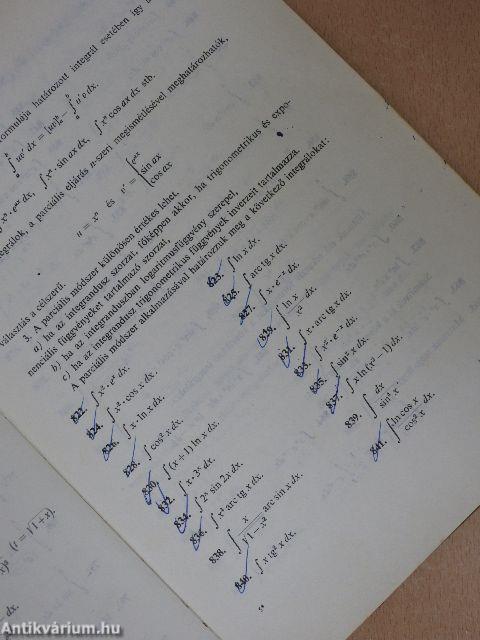 formulája határozott integrál esetében így
∫ uv' dx = [uv] − ∫ u'v dx.
xⁿ · eᵃˣ dx, ∫ xⁿ · sin ax dx, ∫ xⁿ cos ax dx stb.
integrálok, a parciális eljárás n-szeri megismétlésével meghatározhatók,
u = xⁿ és v' = { eᵃˣ
sin ax
cos ax
választás a célszerű.
3. A parciális módszer különösen értékes lehet,
a) ha az integrandusz szorzat, főképpen akkor, ha trigonometrikus és expo-
nenciális függvényeket tartalmazó szorzat,
b) ha az integranduszban logaritmusfüggvény szerepel,
c) ha az integrandusz trigonometrikus függvények inverzeit tartalmazza.
A parciális módszer alkalmazásával határozzuk meg a következő integrálokat:
822. ∫ x² · eˣ dx. 823. ∫ ln x dx.
824. ∫ x² · cos x dx. 825. ∫ arc tg x dx.
826. ∫ x · ln x dx. 827. ∫ x · e⁻ˣ dx.
828. ∫ cos² x dx. 829. ∫ ln x / x² dx.
830. ∫ (x + 1) ln x dx. 831. ∫ x · arc tg x dx.
832. ∫ x · 3ˣ dx. 833. ∫ x² · e⁻ˣ dx.
834. ∫ 2ˣ sin 2x dx. 835. ∫ sin² x dx.
836. ∫ x² arc tg x dx. 837. ∫ x ln (x² − 1) dx.
838. ∫ x / √1 − x² arc sin x dx. 839. ∫ dx / sin³ x.
840. ∫ x tg² x dx. 841. ∫ ln cos x / cos² x dx.
(t = √1 + x).
dx.
Antikvárium.hu